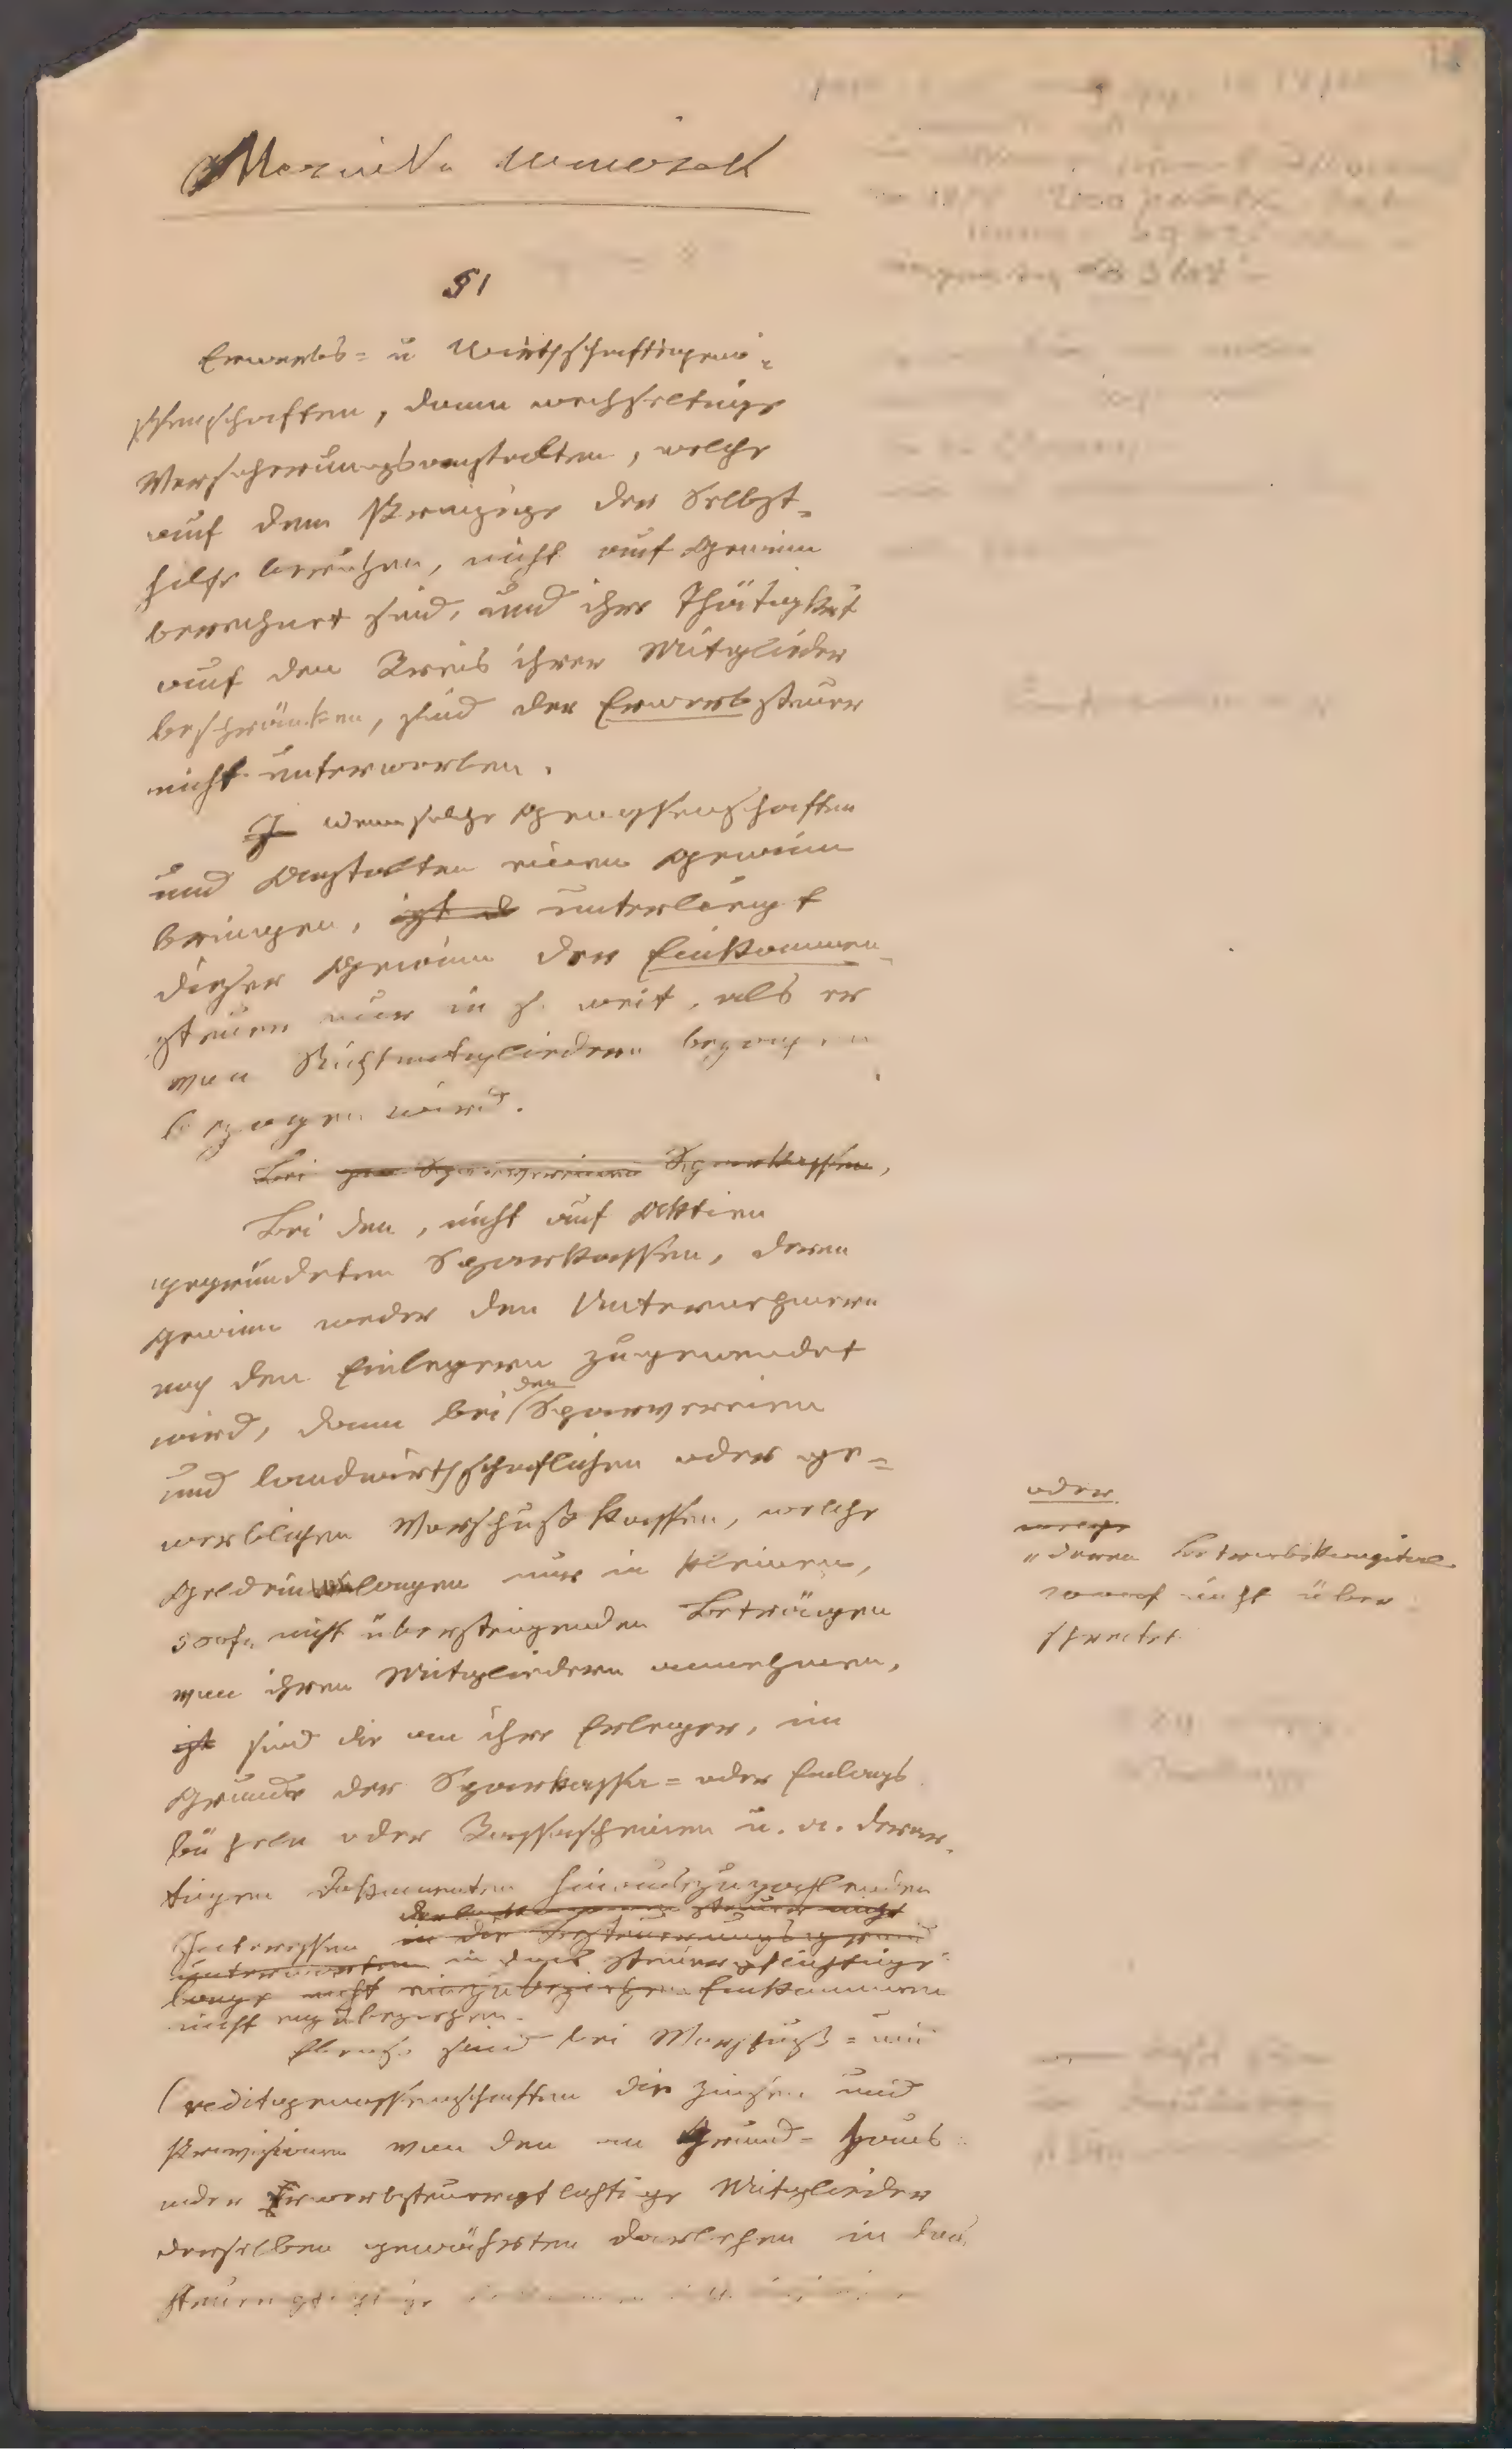 §1
Erwerbs= u Wirthschaftsgeno=
ssenschaften, dann wechselseitige
Versicherungsanstalten, welche
auf dem Prinzipe der Selbst=
hilfe beruhen, nicht auf Gewinn
berechnet sind, und ihre Thätigkeit
auf den Kreis ihrer Mitglieder
beschränken, sind der Erwerbsteuer
nicht unterworfen.
Wenn solche Genossenschaften
und Anstalten einen Gewinn
bringen, ist unterliegt
dieser Gewinn der Einkommen=
steuer nur in so weit, als er
von Nichtmitgliedern
bezogen wird.
Bei Sparvereinen Sparkassen,
Bei den, nicht auf Aktien
gegründeten Sparkassen, deren
Gewinn weder den Unternehmern
noch den Einlegern zugewendet
wird, dann bei den Sparvereinen
und landwirthschaftlichen oder ge=
werblichen Vorschußkassen, welche
Geldeinlagen nur in kleinen,
500f. nicht übersteigenden Beträgen
von ihren Mitgliedern annehmen,
ist sind die an ihre Erleger, im
Grunde der Sparkassa= oder Einlags
bücheln oder Kassascheinen u. a. derar=
tigen Dokumenten hinauszuzahlenden
Interessen in die Besteuerungsgrund
in das steuerpflichtige
lage nicht einzubeziehen Einkommen
nicht einzubeziehen.
Ebenso sind bei Vorschuß= und
Creditgenossenschaften die Zinsen und
Provisionen von den an Grund= Haus
oder Erwerbsteuerpflichtige Mitglieder
derselben gewährten Darlehen in das
steuerpflichtige
oder
welche
deren Betriebskapital
nicht über
schreitet